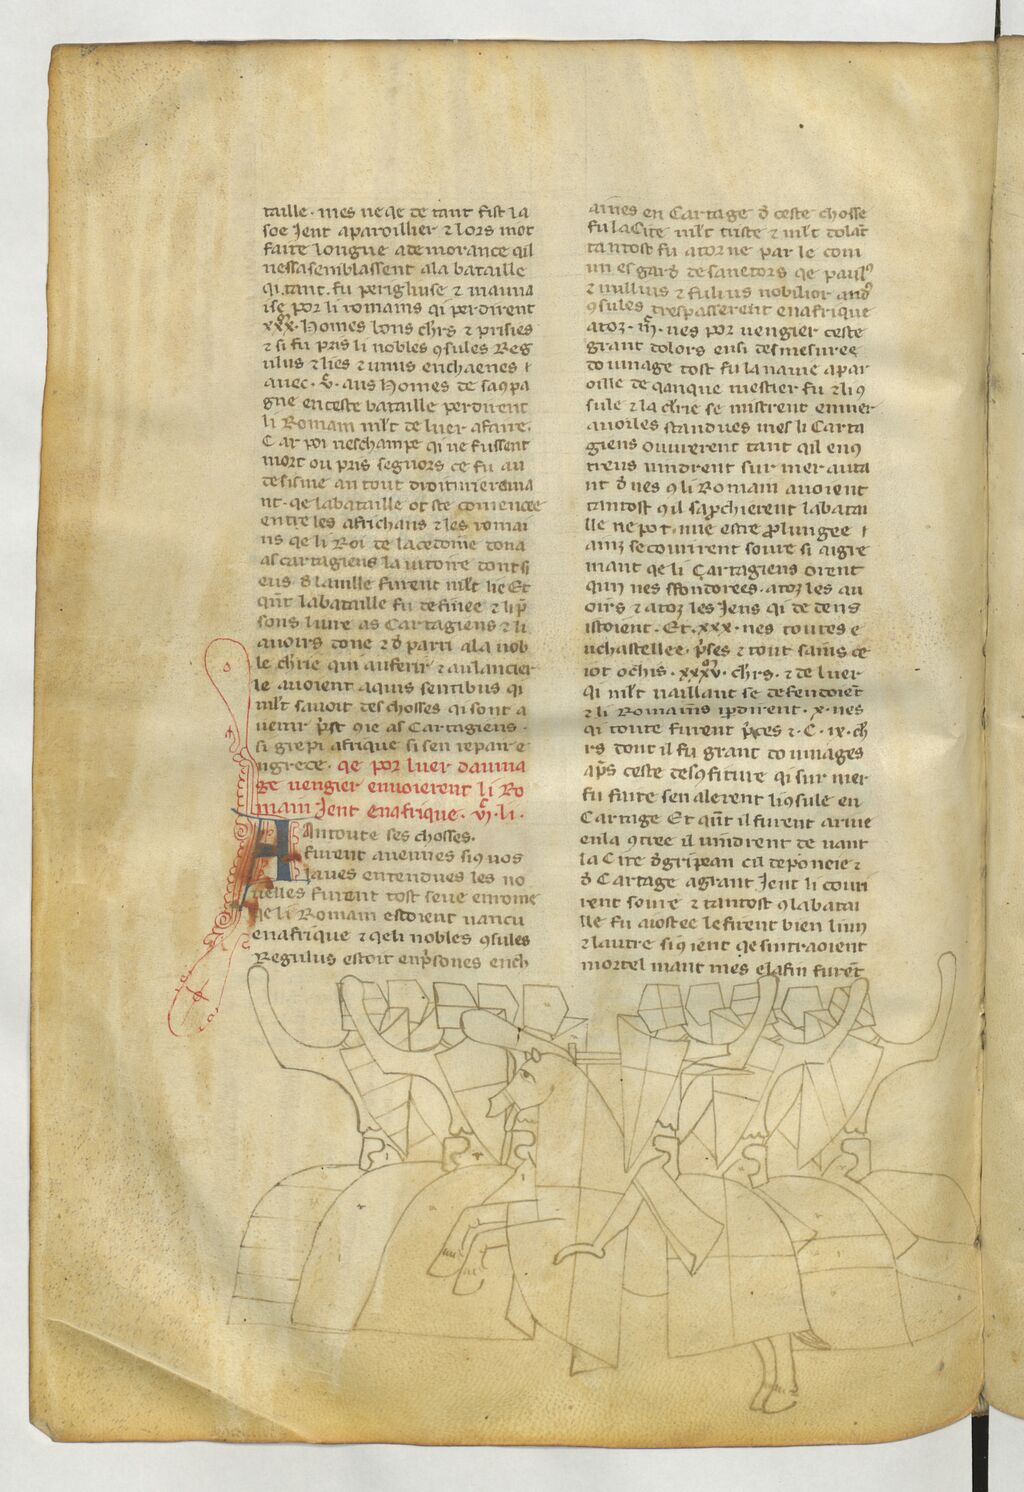 taille · mes neqe de tant fist la
soe Jent aparoillier ⁊ lors mot
faite longue ademorance qil
nessasemblassent ala bataille
qi.tant.fu perighuse ⁊ mauua
ise por li romains qi perdirent
xxx · homes bons chr̄s ⁊ prisies
⁊ si fu pris li nobles ꝯsules Reg
ulus ⁊ lies ⁊ mis enchaenes ⁊
auec · v̄ · aus homes de
gne enceste bataille perdirent
li Romain ml̄t de luer afaire.
Car poi neschampe qi ne fussent
mort ou pris segnors ce fu au
desisme an tout
nt · qe labataille ot ste comencee
entre les africhans ⁊ les romai
ns qe li Roi de lacedome dona
as cartagiens la uitoire dont si
eus d̄ lauille furent ml̄t lie Et
qn̄t labataille fu definee ⁊ li p̄
sons liure as Cartagiens ⁊ li
auoirs done ⁊ d̄parti ala nob
le ch̄rie qui auferir ⁊ aulancier
le auoient aquis sentibus qi
ml̄t sauoit des chosses qi sont a
uenir p̄st ꝯie as Cartagiens ·
si grepi afrique si sen repaire
ngrece · qe por luer dauma
ge uengier enuoierent li Ro
main Jent enafrique · li ·
Antoute ses chosses ·
furent auenues si ꝯ uos
laues entendues les no
uelles furent tost seue enrome
qe li Romain estoient uancu
enafrique ⁊ qeli nobles ꝯsules
Regulus estoit enp̄sones ench
aines en Cartage d̄ ceste chosse
fu laCite ml̄t triste ⁊ ml̄t dolāt
tantost fu atorne par le com
un esgard̄ desanetors qe paulꝰ
⁊ fuluius nobilior
ꝯsules trespasserent enafrique
atoz · nes por uengier ceste
grant dolors ensi desmesuree
domage tost fu la nauie apar
oille de qanque mestier fu ⁊ li ꝯ
sule ⁊ la ch̄rie se mistrent enmer
auoiles standues mes li Carta
giens ouurerent tant qil enꝯ
treus uindrent sur mer auta
nt d̄ nes ꝯ li Romain auoient
tantost ꝯ il sap̄chierent labatai
lle ne pot mie estre ꝓlungee ⁊
ainz secorirent soure si aigre
mant qe li Cartagiens orent
nes sfondorees · atoz les au
oirs ⁊ atoz les Jens qi dedens
istoient · Et · xxx · nes toutes e
uchastellee · p̄ses ⁊ tout
iot ochis · xxxv · ch̄rs · ⁊ de luer
qi ml̄t uaillant se defendoiēt
⁊ li Romains ip̄dirent · x · nes
qi toute furent ⁊ · C · ix · ch̄
rs dont il fu grant domages
ap̄s ceste desꝯfiture qi sur mer
fu faite sen alerent liꝯsule en
Cartage Et qn̄t il furent ariue
enla ꝯtree il uindrent de uant
la Cite d̄gripean cil deponcie ⁊
d̄ Cartage agrant Jent li couri
rent soure ⁊ tantost ꝯ labatai
lle fu aiostee le firent bien liun
⁊ lautre si ꝯ ient qe sintraoient
mortel mant mes elafin furēt